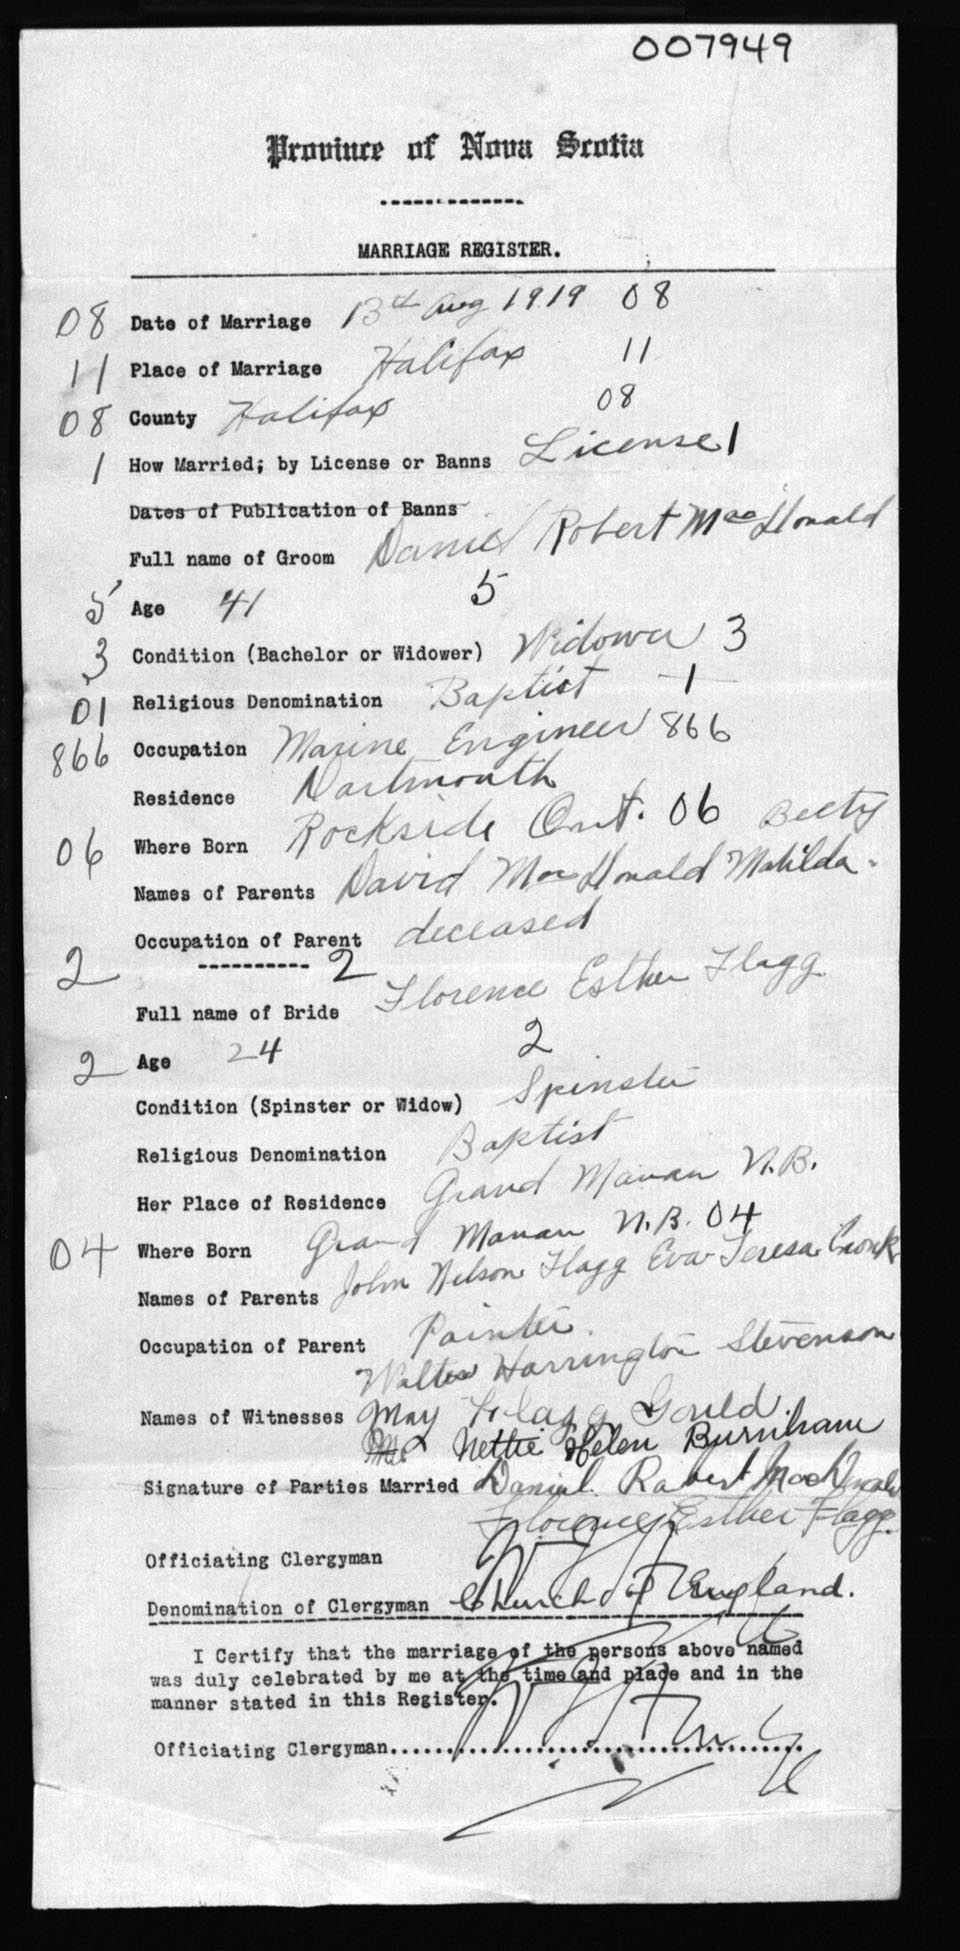 007949
Province of Nova Scotia
MARRIAGE REGISTER.
08 Date of Marriage 13th Aug 1919 08
11 Place of Marriage Halifax 11
08 County Halifax 08
1 How Married; by License or Banns License 1
Dates of Publication of Banns
Full name of Groom Daniel Robert MacDonald
5 Age 41 5
3 Condition (Bachelor or Widower) Widower 3
01 Religious Denomination Baptist 1
866 Occupation Marine Engineer 866
Residence Dartmouth
06 Where Born Rockside Ont. 06
Names of Parents David MacDonald Matilda Beety
Occupation of Parent deceased
2 2
Full name of Bride Florence Esther Flagg
2 Age 24 2
Condition (Spinster or Widow) Spinster
Religious Denomination Baptist
Her Place of Residence Grand Manan N.B.
04 Where Born Grand Manan N.B. 04
Names of Parents John Nelson Flagg Eva Teresa Cronk
Occupation of Parent Painter.
Walter Harrington Stevenson
Names of Witnesses May Flagg Gould.
Nettie Helen Burnham
Signature of Parties Married Daniel Robert MacDonald
Florence Esther Flagg.
Officiating Clergyman
Denomination of Clergyman Church of England.
I Certify that the marriage of the persons above named
was duly celebrated by me at the time and place and in the
manner stated in this Register.
Officiating Clergyman